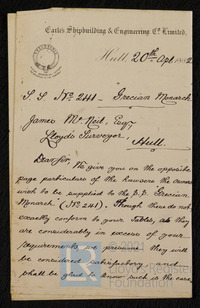 Earles Shipbuilding & Engineering Co. Limited,
Hull, 20th Apl. 1882
S.S. No. 241 - Grecian Monarch
James McNeil, Esq,
Lloyds Surveyor,
Hull.
Dear Sir, We give you on the opposite
page particulars of the hawsers the owners
wish to be supplied to the S.S. Grecian
Monarch (No. 241). Though these do not
exactly conform to your Tables, as they
are considerably in excess of your
requirements we presume they will
be considered satisfactory and
shall be glad to know such is the case
Lloyd's Register
Foundation